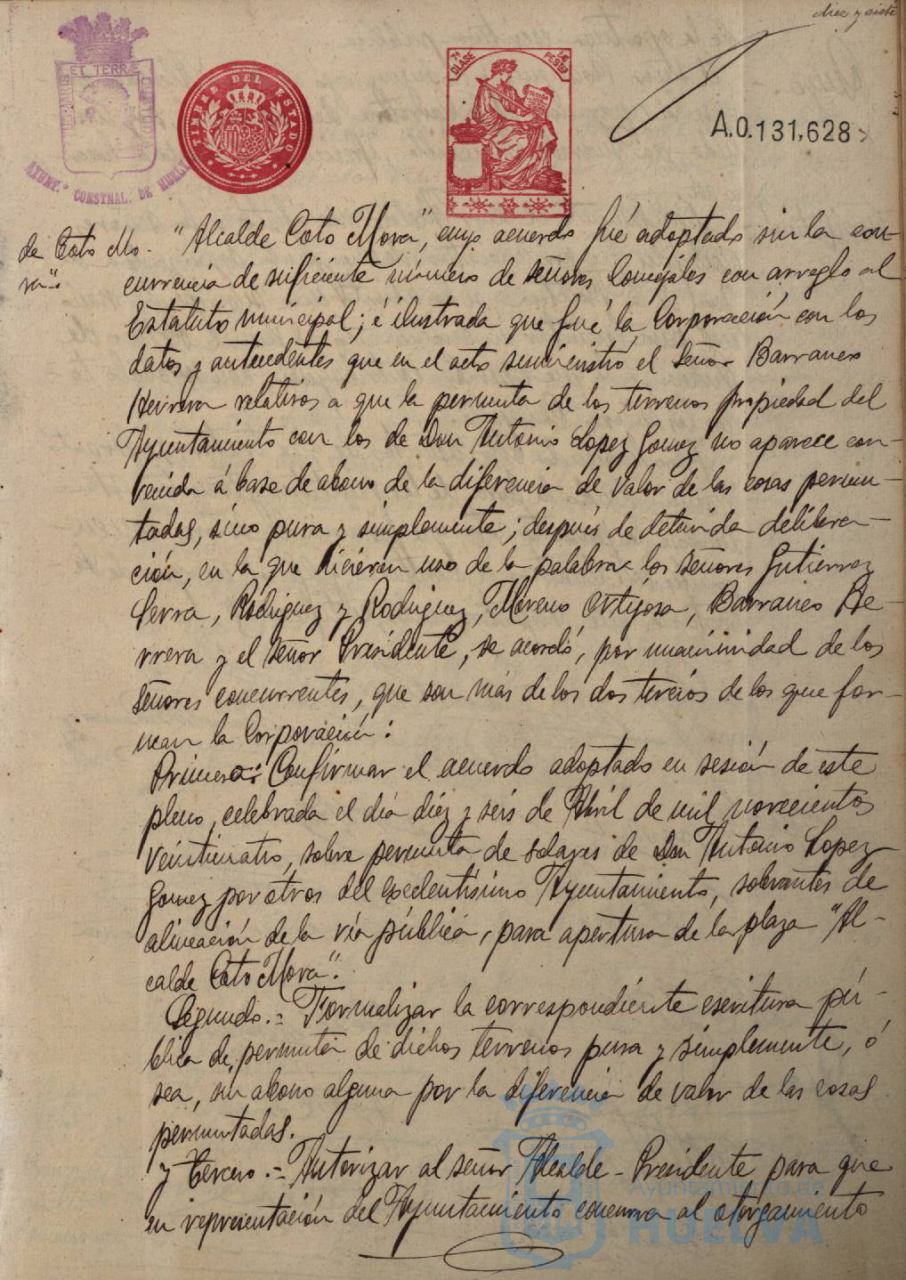 diez y siete
EL TERRÆ
AYUNT.º CONSTNAL. DE HUELVA
TIMBRE DEL ESTADO
7ª CLASE
A.0.131,628
de Coto Mo-
ra".
"Alcalde Coto Mora", cuyo acuerdo fué adoptado sin la con-
currencia de suficiente número de señores Concejales con arreglo al
Estatuto municipal; é ilustrada que fué la Corporación con los
datos y antecedentes que en el acto suministró el señor Barranco
Herrera relativos a que la permuta de los terrenos propiedad del
Ayuntamiento con los de Don Antonio Lopez Gomez no aparece con-
venida á base de abono de la diferencia de valor de las cosas permu-
tadas, sino pura y simplemente; después de detenida delibera-
ción, en la que hicieron uso de la palabra los señores Gutierrez
Serra, Rodriguez y Rodriguez, Moreno Ortijosa, Barranco He-
rrera y el señor Presidente, se acordó, por unanimidad de los
señores concurrentes, que son más de los dos tercios de los que for-
man la Corporación:
Primero: Confirmar el acuerdo adoptado en sesión de este
pleno, celebrada el día diez y seis de Abril de mil novecientos
veinticuatro, sobre permuta de solares de Don Antonio Lopez
Gomez por otros del excelentísimo Ayuntamiento, sobrantes de
alineación de la vía pública, para apertura de la plaza "Al-
calde Coto Mora".
Segundo.= Formalizar la correspondiente escritura pú-
blica de permuta de dichos terrenos pura y simplemente, ó
sea, sin abono alguno por la diferencia de valor de las cosas
permutadas.
y Tercero.= Autorizar al señor Alcalde-Presidente para que
en representación del Ayuntamiento concurra al otorgamiento
Ayuntamiento de
HUELVA